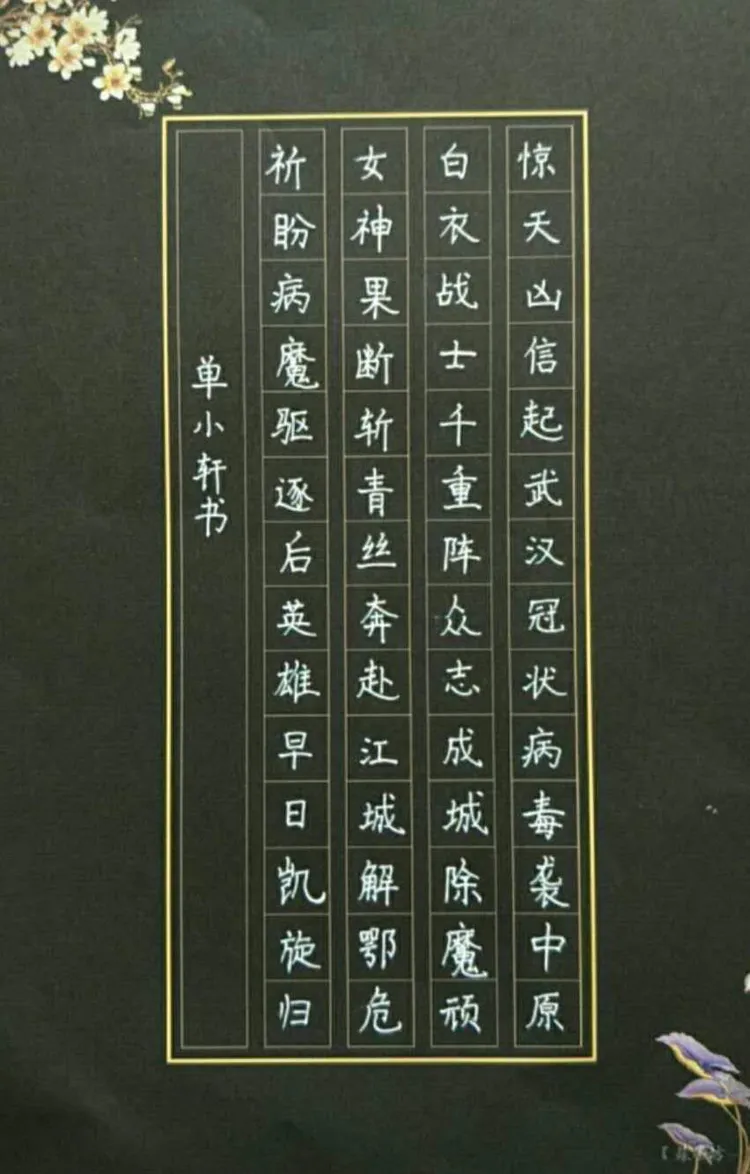 惊天凶信起武汉冠状病毒袭中原
白衣战士千重阵众志成城除魔顽
女神果断斩青丝奔赴江城解鄂危
祈盼病魔驱逐后英雄早日凯旋归
单小轩书